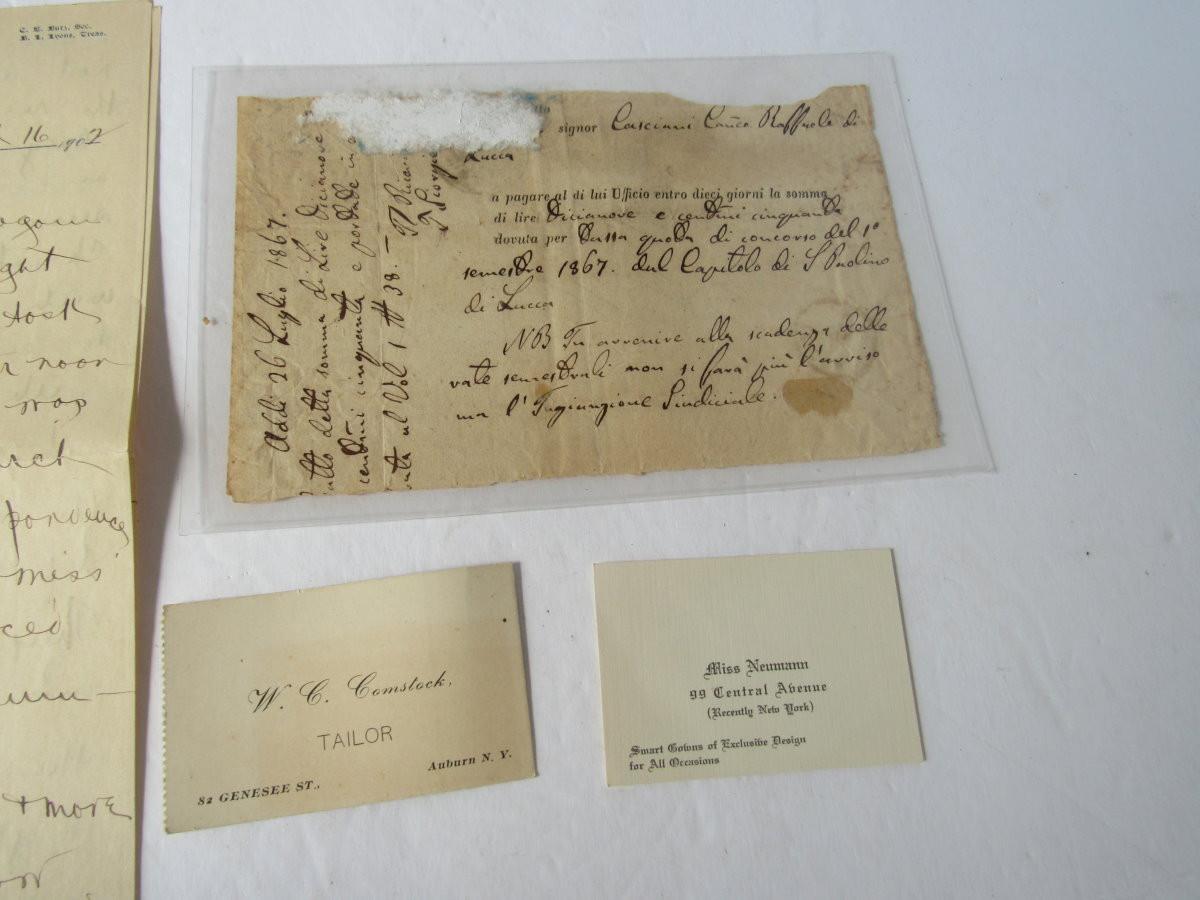 C. W. Burr, Sec.
B. I. Lyons, Treas.
16, 1902
ght
took
noon
was
pondence
miss
ced
+ more
signor Casciani Can.co Raffaele di
Lucca
a pagare al di lui Ufficio entro dieci giorni la somma
di lire Dicianove e centmi cinquanta
dovuta per tassa quota di concorso del 1°
semestre 1867. dal Capitolo di S Paolino
di Lucca
NB In avvenire alla scadenza delle
rate semestrali non si farà più l'avviso
ma l'Ingiunzione Giudiciale.
Addi 26 Luglio 1867.
della somma di Lire Dicianove
centmi cinquanta e
al Vol 1 # 38. —
W. C. Comstock,
TAILOR
Auburn N. Y.
82 GENESEE ST.,
Miss Neumann
99 Central Avenue
(Recently New York)
Smart Gowns of Exclusive Design
for All Occasions